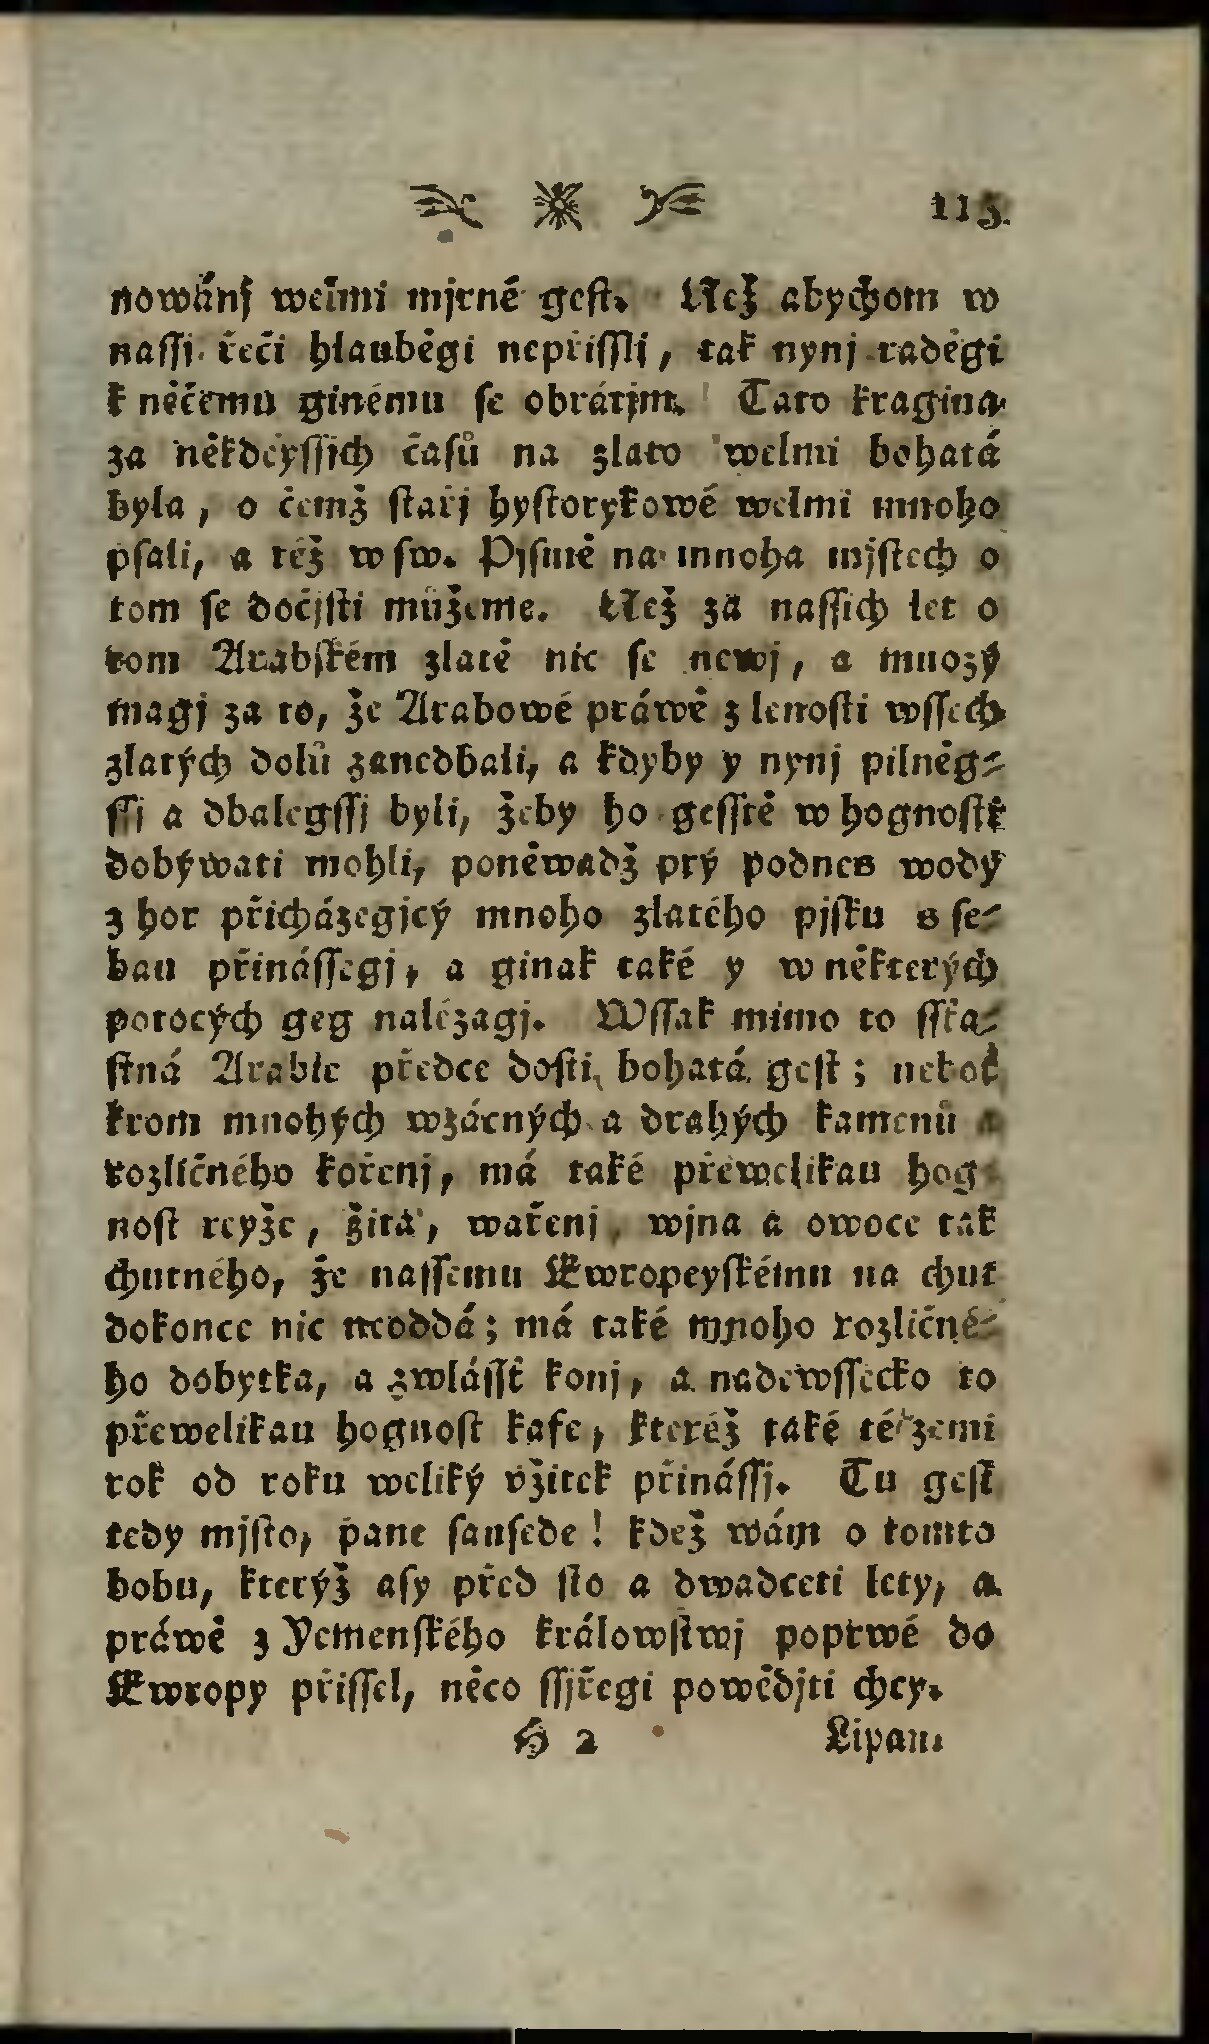 115.
nowánj welmi mjrné gest. Než abychom w
nassi řeči hlauběgi nepřissli, tak nynj raděgi
k něčemu ginému se obrátjm. Tato kragina
za někdeyssjch časů na zlato welmi bohatá
byla, o čemž stařj hystorykowé welmi mnoho
psali, a též w sw. Pjsmě na mnoha mjstech o
tom se dočjsti můžeme. Než za nassich let o
tom Arabském zlatě nic se newj, a mnozý
magj za to, že Arabowé práwě z lenosti wssech
zlatých dolů zanedbali, a kdyby y nynj pilněg-
ssj a dbalegssj byli, žeby ho gesstě w hognosti
dobýwati mohli, poněwadž prý podnes wody
z hor přicházegjcý mnoho zlatého pjsku s se-
bau přinássegj, a ginak také y w některých
potocých geg nalézagj. Wssak mimo to sstia-
stná Arabie předce dosti bohatá gest; neboť
krom mnohých wzácných a drahých kamenů a
rozličného kořenj, má také přewelikau hog-
nost reyže, žita, wařenj, wjna a owoce tak
chutného, že nassemu Ewropeyskému na chut
dokonce nic neoddá; má také mnoho rozličné-
ho dobytka, a zwlásstě konj, a nadewssecko to
přewelikau hognost kafe, kteréž také té zemi
rok od roku weliký vžitek přinássj. Tu gest
tedy mjsto, pane sausede! kdež wám o tomto
bobu, kterýž asy před sto a dwadceti lety, a
práwě z Yemenského králowstwj poprwé do
Ewropy přissel, něco ssjřegi powědjti chcy.
H 2 Lipan.